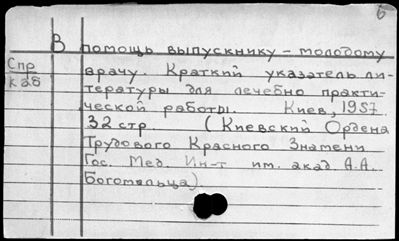 б
В помощь выпускнику – молодому
Спр врачу. Краткий указатель ли-
К 28 тературы для лечебно практи-
ческой работы. Киев, 1957.
32 стр. (Киевский Ордена
Трудового Красного Знамени
Гос. Мед. Ин-т им. акад А.А.
Богомольца).